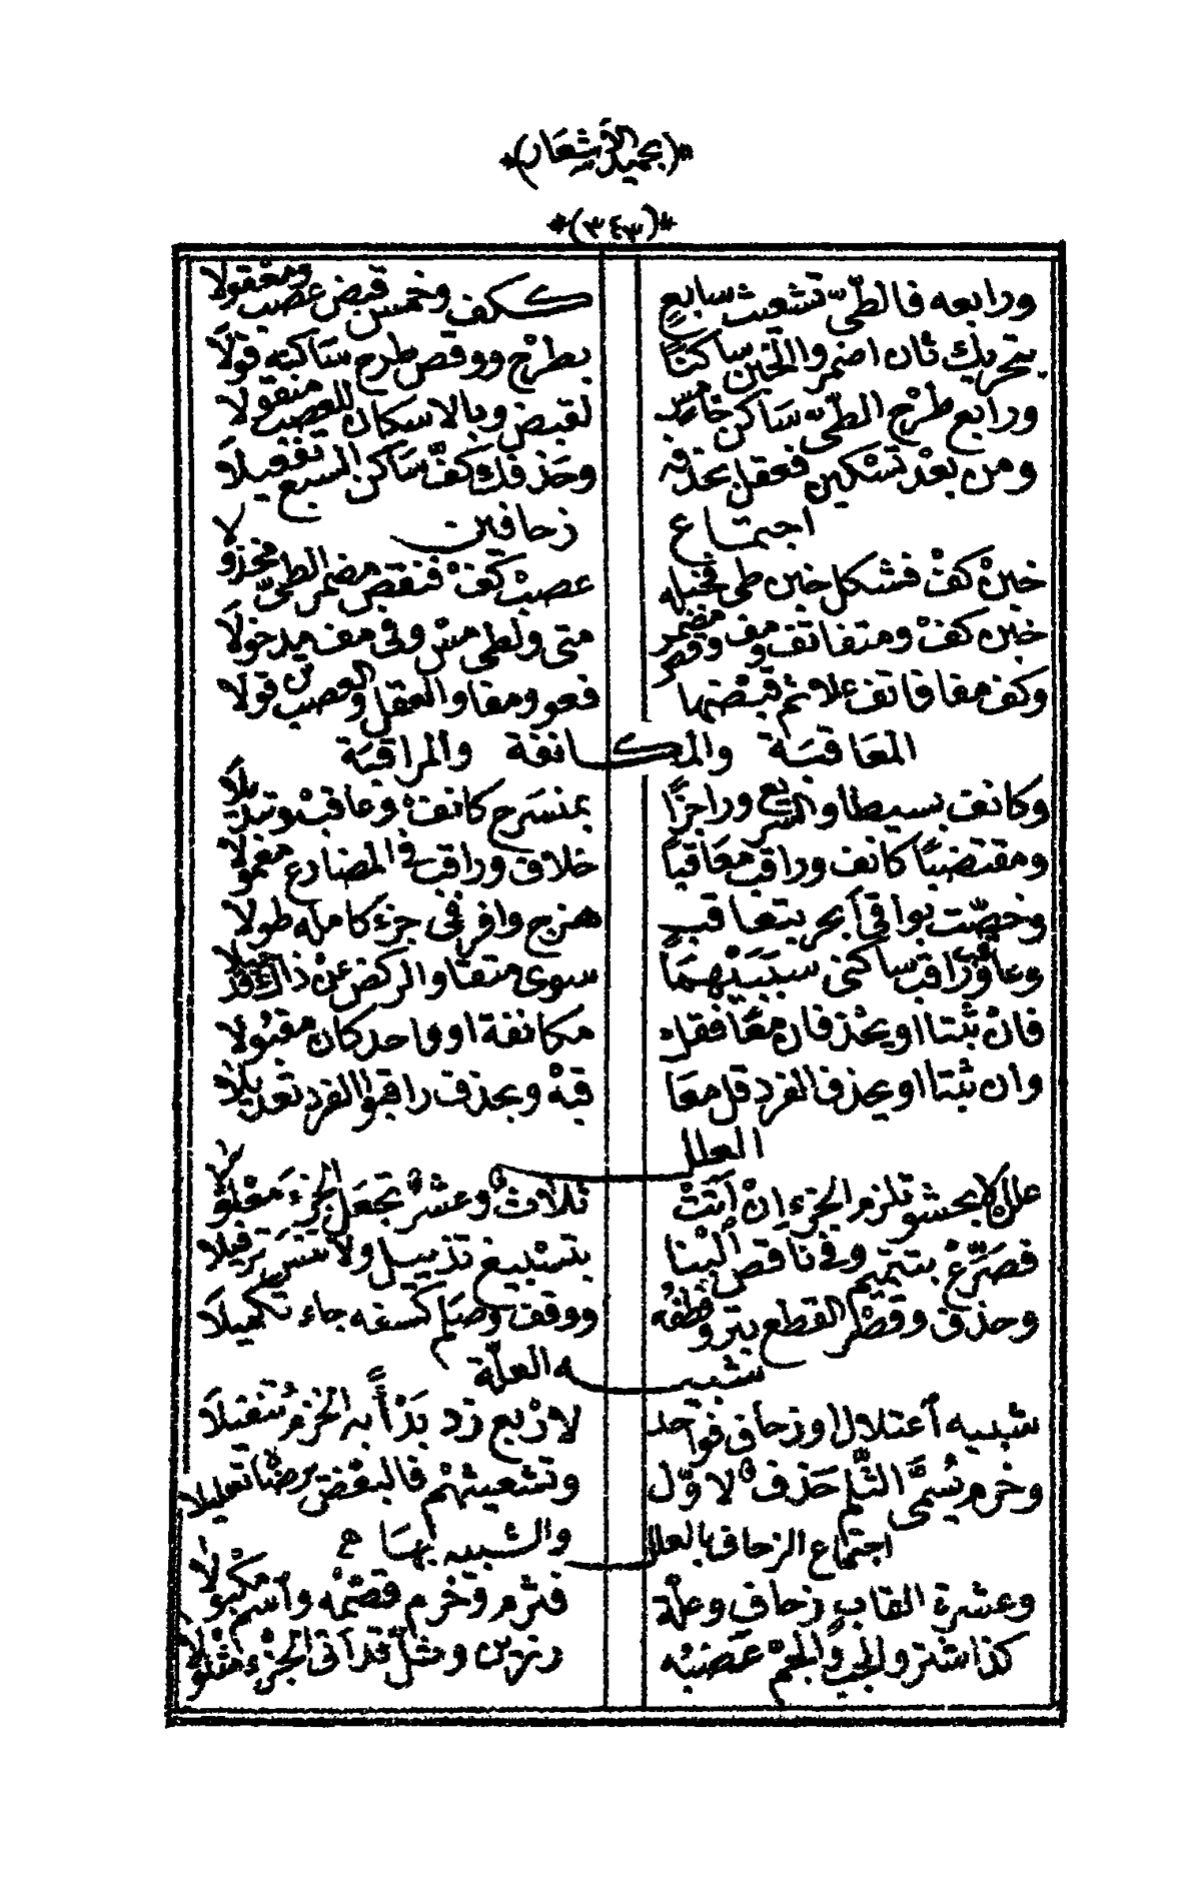 *(بحميد الأشعار)*
*(٣٤٣)*
ورابعه فالطّيّ تشعيث سابعٍ ككف وخمس قبض عصب ومعقولا
بتحريك ثان اضمر والخبن ساكنًا بطرح ووقص طرح ساكنه قولَا
ورابع طرْح الطّيّ سَاكن خامس لقبض وبالاسكان للعصب منقولا
ومن بعْد تسْكين فعقل بحذفه وحَذفك كفّ سَاكن السبع تفْصيلَا
اجتمَاع زحافين
خبنْ كفْ فشكل خبن طى فخبله عصبْ كفْ فنقص مضمر الطىّ مخزولا
خبن كفْ ومتفا تف ومف وقص مضمر متى ولطى مسْ وفى مف مدخولَا
وكف مفا فاتف علاتم قبْضها فعو ومفا والعقل والعصب قولَا
المعَاقبَة والمكانفة والمراقبَة
وكانف بسيطا والسريع وراجزًا بمنسَرح كانفْ وعاقبْ
ومقتضبًا كانف وراقب معَاقبًا خلاف وراقب فى المضارع
وخصّت بواقى أبحر بتعاقب هزج وافر ففى جزء كامله طولَا
وراقب ساكنى سببَيْهمَا سوى متقا والركض عنْ ذاك قد
فانْ ثبتا او يحْذفان معًا فقل مكانفة او واحد كان مقبُولا
وان ثبتا او يحذف الفرد قل معَا قبَة وبحذف راقبوا الفرد تعْديلَا
العلل
علل لا بحشو تلزم الجزء اِنْ أتتْ ثلاث وعشر تجعَل الجزءَ معْلولا
فصَرّعْ بتتميم وفى ناقص ٱلبْنا بتسْبيغ تذييل ولا تنسَ ترفيلا
وحذف وقصْر القطع بتر وقطفُه ووقف وصَلم كسفه جاء تكميلَا
شبيه العلّة
شبيه ٱعتلال او زحاف فواحد لارْبع زد بَدْأً به الخزم تنفيلَا
وخرم يُسمَّى الثّلم حَذف لاوّل وتشعيثهْم فالبعْض يرضاه تعليلا
اجتماع الزحاف بالعلل والشبيه بهَا
وعشرة القاب زحاف وعلّة فثرم وخرم قصْمْه واسم مكْبولَا
كذا شتر والجب والجمّ عَضبْه